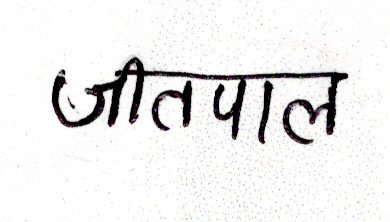 जीतपाल